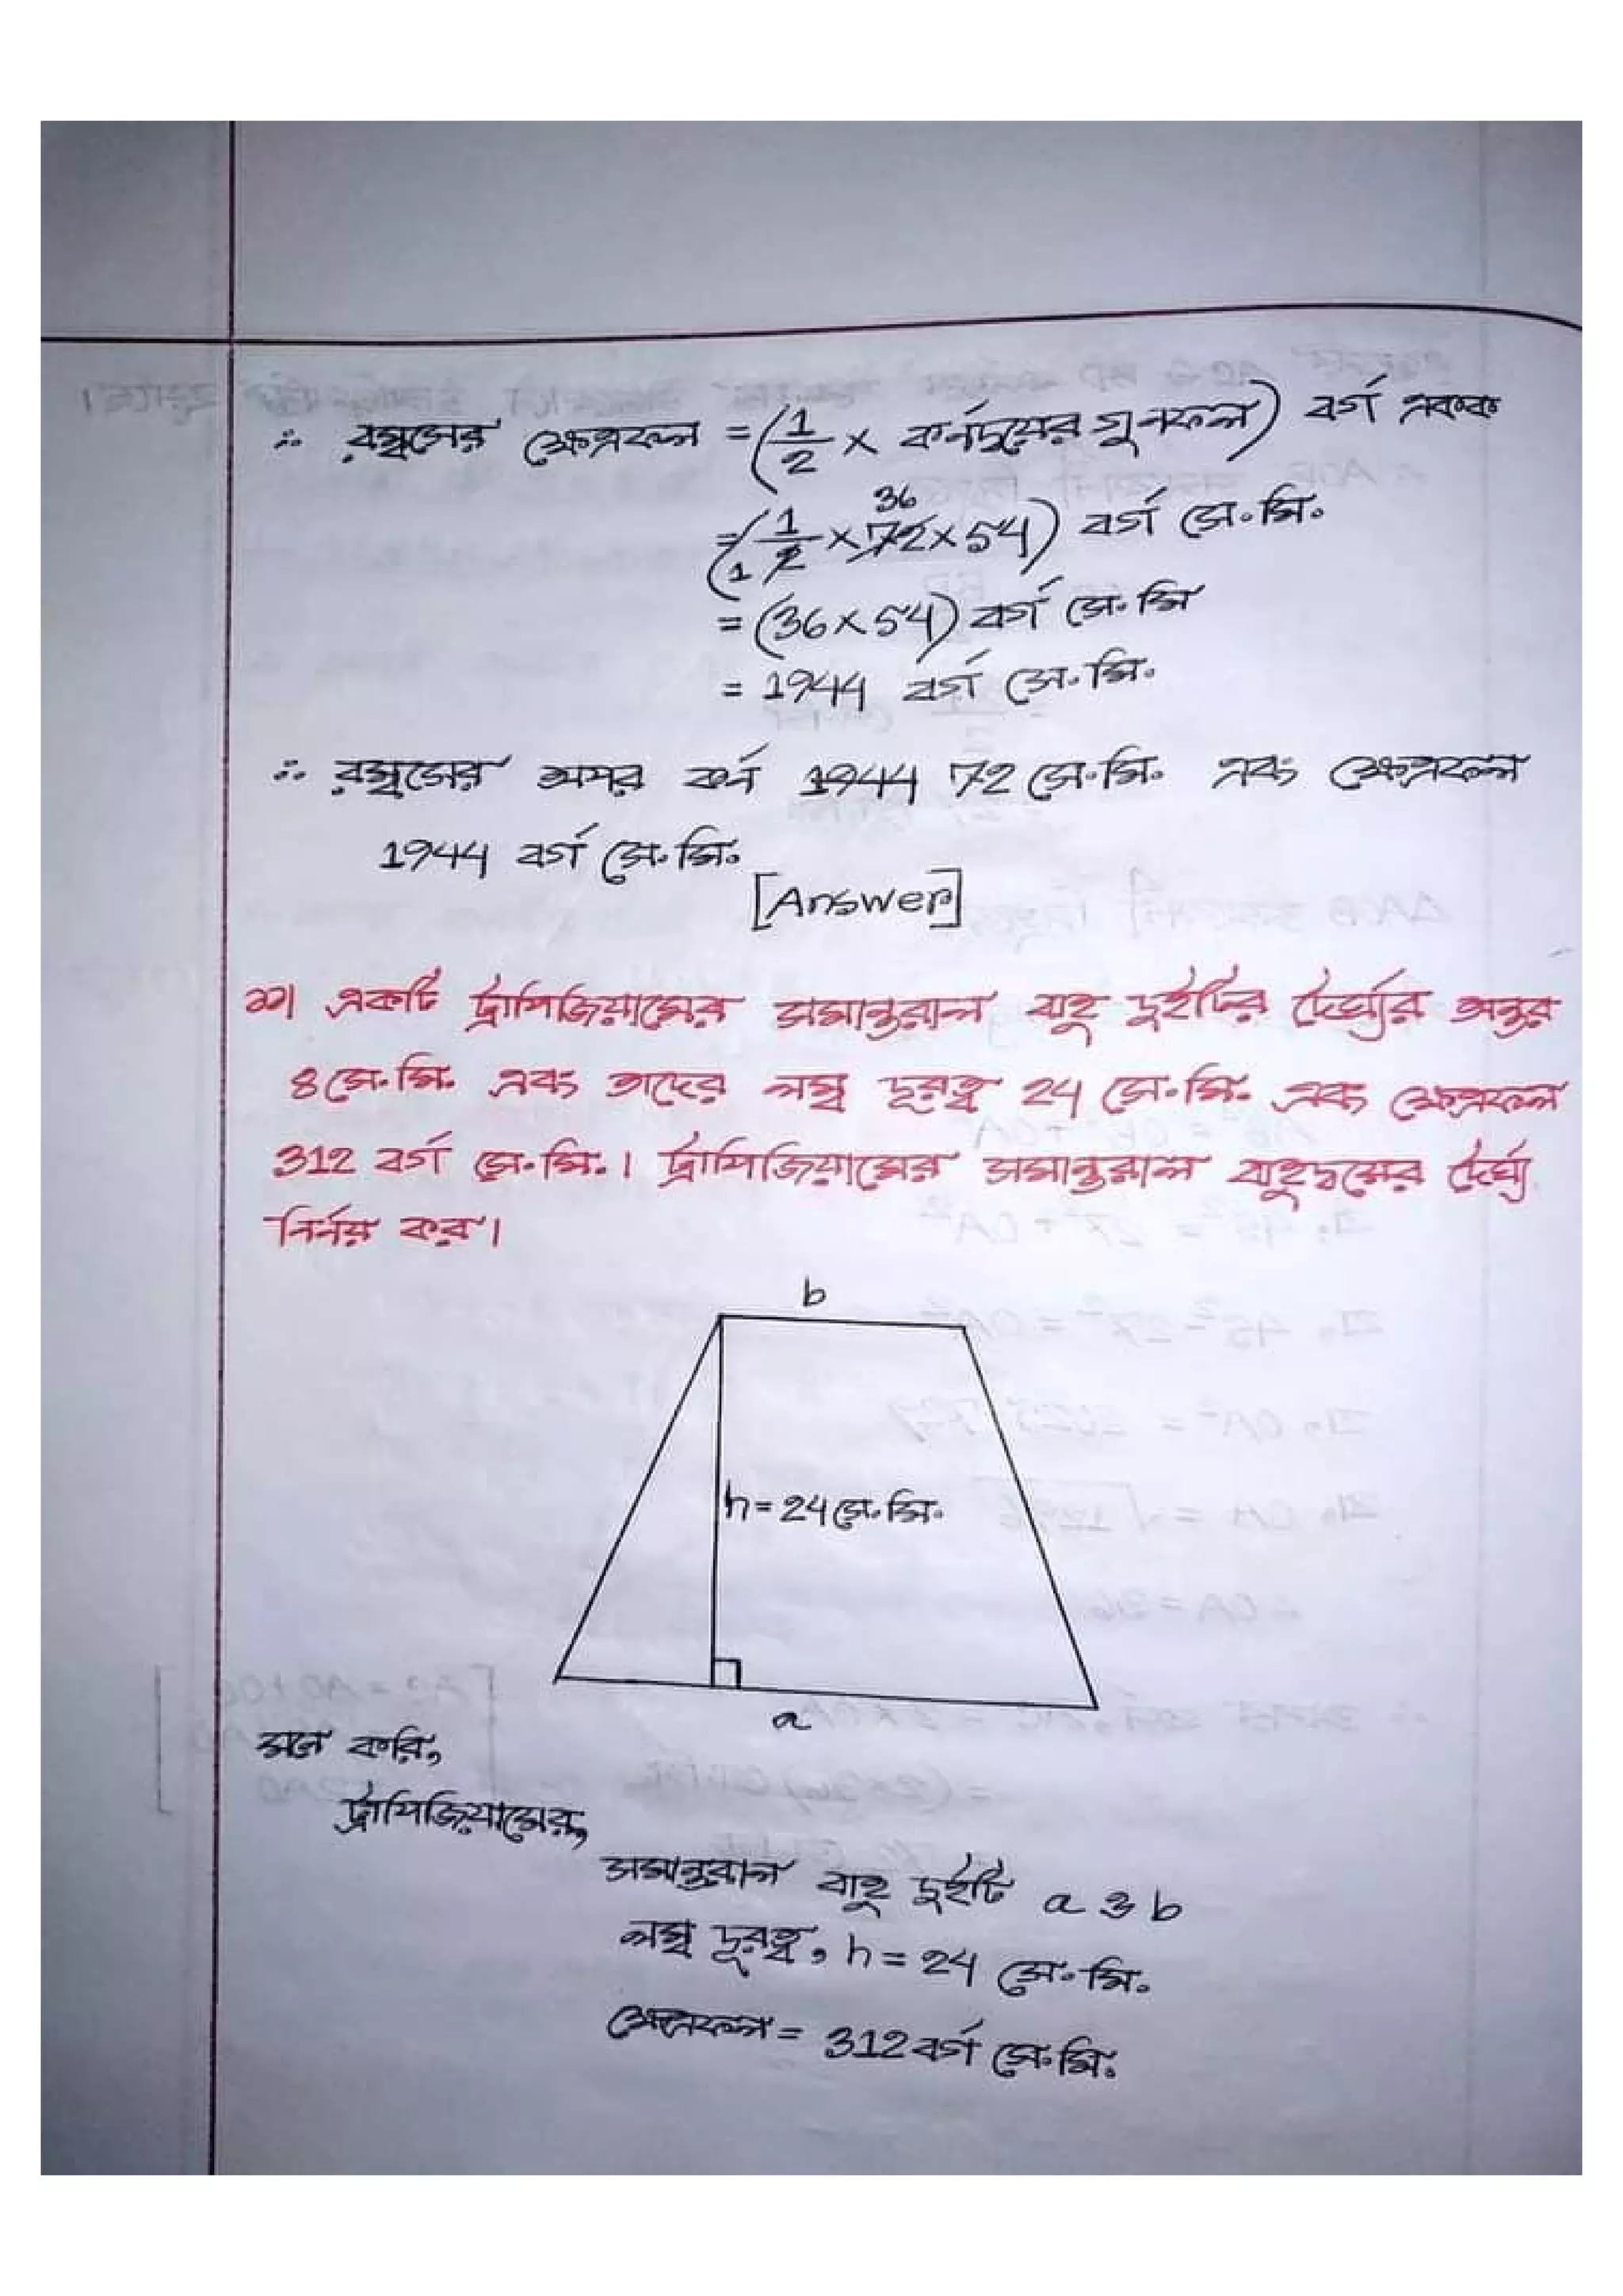 ∴ রম্বসের ক্ষেত্রফল = (1/2 × কর্ণদ্বয়ের গুনফল) বর্গ একক
= (1/2 × 72 × 54) বর্গ সে.মি.
36
1
= (36 × 54) বর্গ সে.মি
= 1944 বর্গ সে.মি.
∴ রম্বসের অপর কর্ন 1944 72 সে.মি. এবং ক্ষেত্রফল
1944 বর্গ সে.মি.
[Answer]
১১। একটি ট্রাপিজিয়ামের সমান্তরাল বাহু দুইটির দৈর্ঘ্যের অন্তর
8 সে.মি. এবং তাদের লম্ব দূরত্ব 24 সে.মি. এবং ক্ষেত্রফল
312 বর্গ সে.মি.। ট্রাপিজিয়ামের সমান্তরাল বাহুদ্বয়ের দৈর্ঘ্য
নির্নয় কর।
b
h = 24 সে.মি.
a
মনে করি,
ট্রাপিজিয়ামের,
সমান্তরাল বাহু দুইটি a ও b
লম্ব দূরত্ব, h = 24 সে.মি.
ক্ষেত্রফল = 312 বর্গ সে.মি.